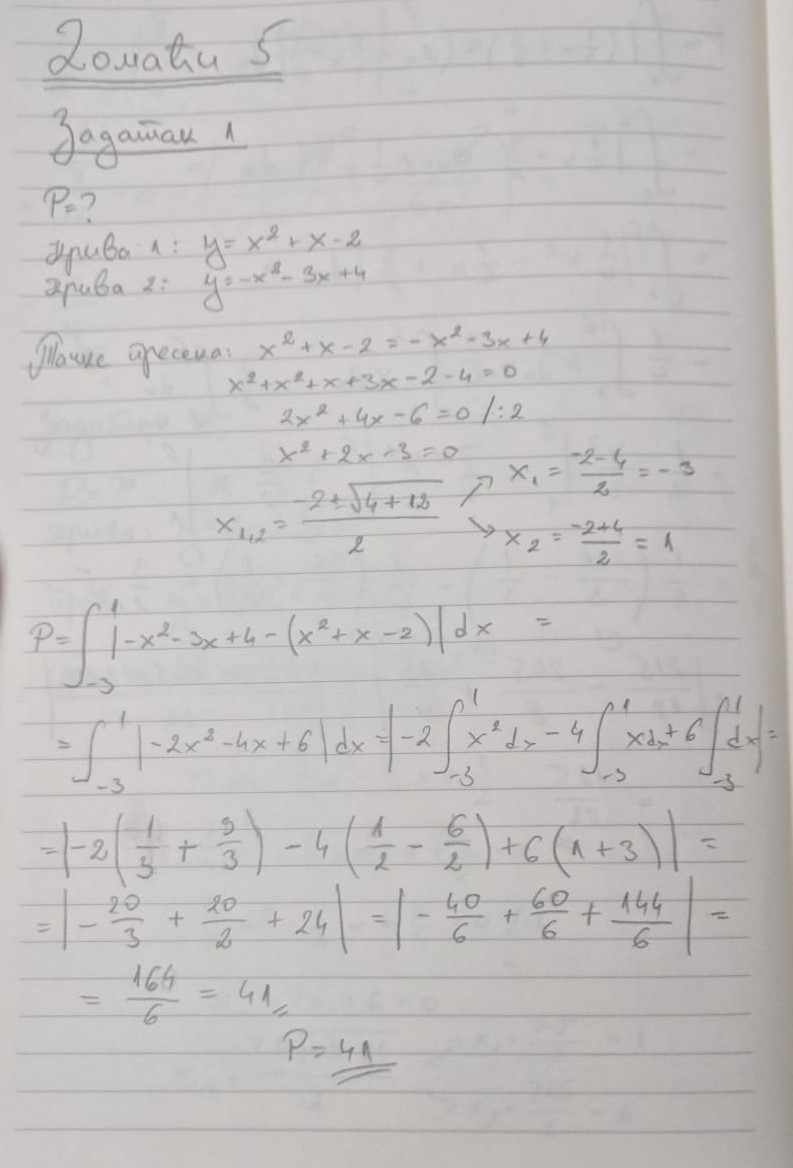 Домаћи 5
Задатак 1
P=?
крива 1: y = x² + x - 2
крива 2: y = -x² - 3x + 4
Тачке пресека: x² + x - 2 = -x² - 3x + 4
x² + x² + x + 3x - 2 - 4 = 0
2x² + 4x - 6 = 0 /:2
x² + 2x - 3 = 0
x₁,₂ = (-2 ± √(4+12))/2 ↗ x₁ = (-2-4)/2 = -3
↘ x₂ = (-2+4)/2 = 1
P = ∫₋₃¹ |-x² - 3x + 4 - (x² + x - 2)| dx =
= ∫₋₃¹ |-2x² - 4x + 6| dx = |-2 ∫₋₃¹ x² dx - 4 ∫₋₃¹ x dx + 6 ∫₋₃¹ dx| =
= |-2(1/3 + 9/3) - 4(1/2 - 6/2) + 6(1+3)| =
= |-20/3 + 20/2 + 24| = |-40/6 + 60/6 + 144/6| =
= 164/6 = 41
P = 41